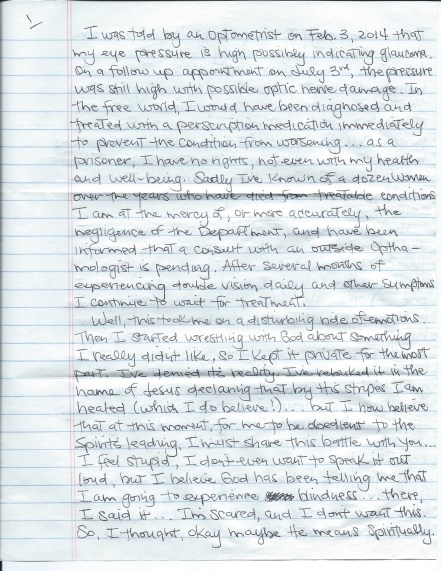 1
I was told by an Optometrist on Feb. 3, 2014 that
my eye pressure is high possibly indicating glaucoma.
On a follow up appointment on July 3rd, the pressure
was still high with possible optic nerve damage. In
the free world, I would have been diagnosed and
treated with a perscription medication immediately
to prevent the condition from worsening... as a
prisoner, I have no rights, not even with my health
and well-being. Sadly I've known of a dozen women
over the years who have died from treatable conditions
I am at the mercy of, or more accurately, the
negligence of the Department, and have been
informed that a consult with an outside Optha-
mologist is pending. After several months of
experiencing double vision daily and other symptoms
I continue to wait for treatment.
Well, this took me on a disturbing ride of emotions.
Then I started wrestling with God about something
I really didn't like, so I kept it private for the most
part. I've denied its reality. I've rebuked it in the
name of Jesus declaring that by His stripes I am
healed (which I do believe!)... but I now believe
that at this moment, for me to be obedient to the
Spirit's leading, I must share this battle with you...
I feel stupid, I don't even want to speak it out
loud, but I believe God has been telling me that
I am going to experience blindness... there,
I said it... I'm scared, and I don't want this.
So, I thought, okay maybe He means Spiritually.